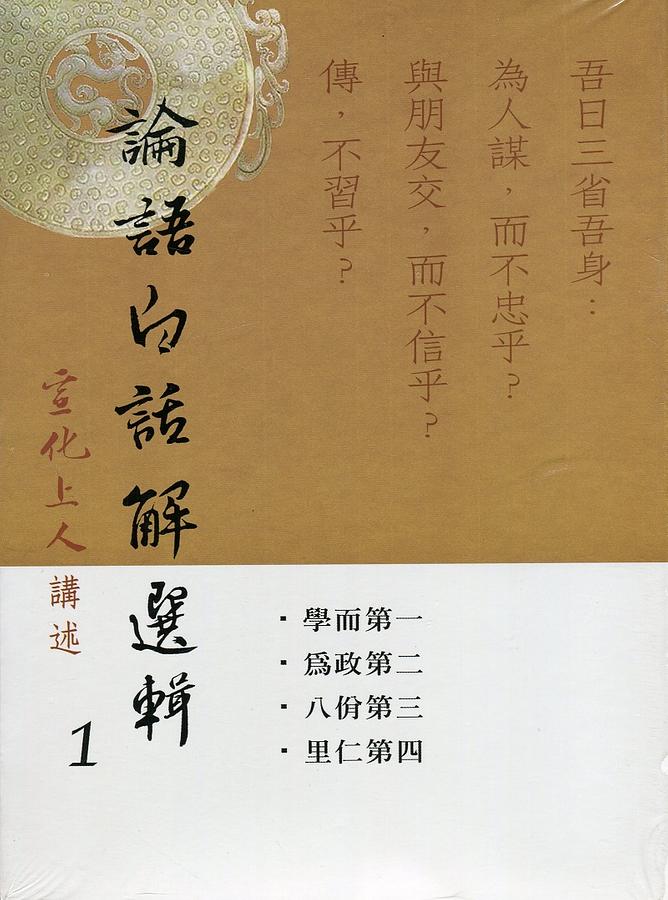 吾日三省吾身：
為人謀，而不忠乎？
與朋友交，而不信乎？
傳，不習乎？
論語白話解選輯
1
宣化上人講述
▪ 學而第一
▪ 爲政第二
▪ 八佾第三
▪ 里仁第四